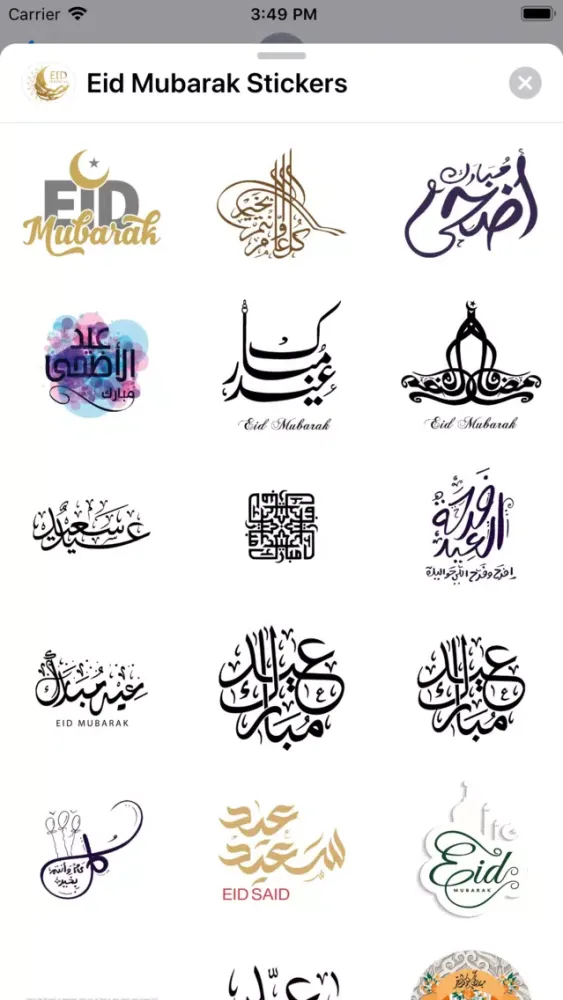 Carrier 3:49 PM
Eid Mubarak Stickers
EID
Mubarak
كل عام وأنتم بخير
أضحى مبارك
عيد
الأضحى
مبارك
عيد مبارك
Eid Mubarak
Eid Mubarak
عيد سعيد
مبارك
فرحة
العيد
عيد مبارك
EID MUBARAK
عيد
مبارك
عيد
مبارك
كل
بخير
عيد
سعيد
EID SAID
Eid
MUBARAK